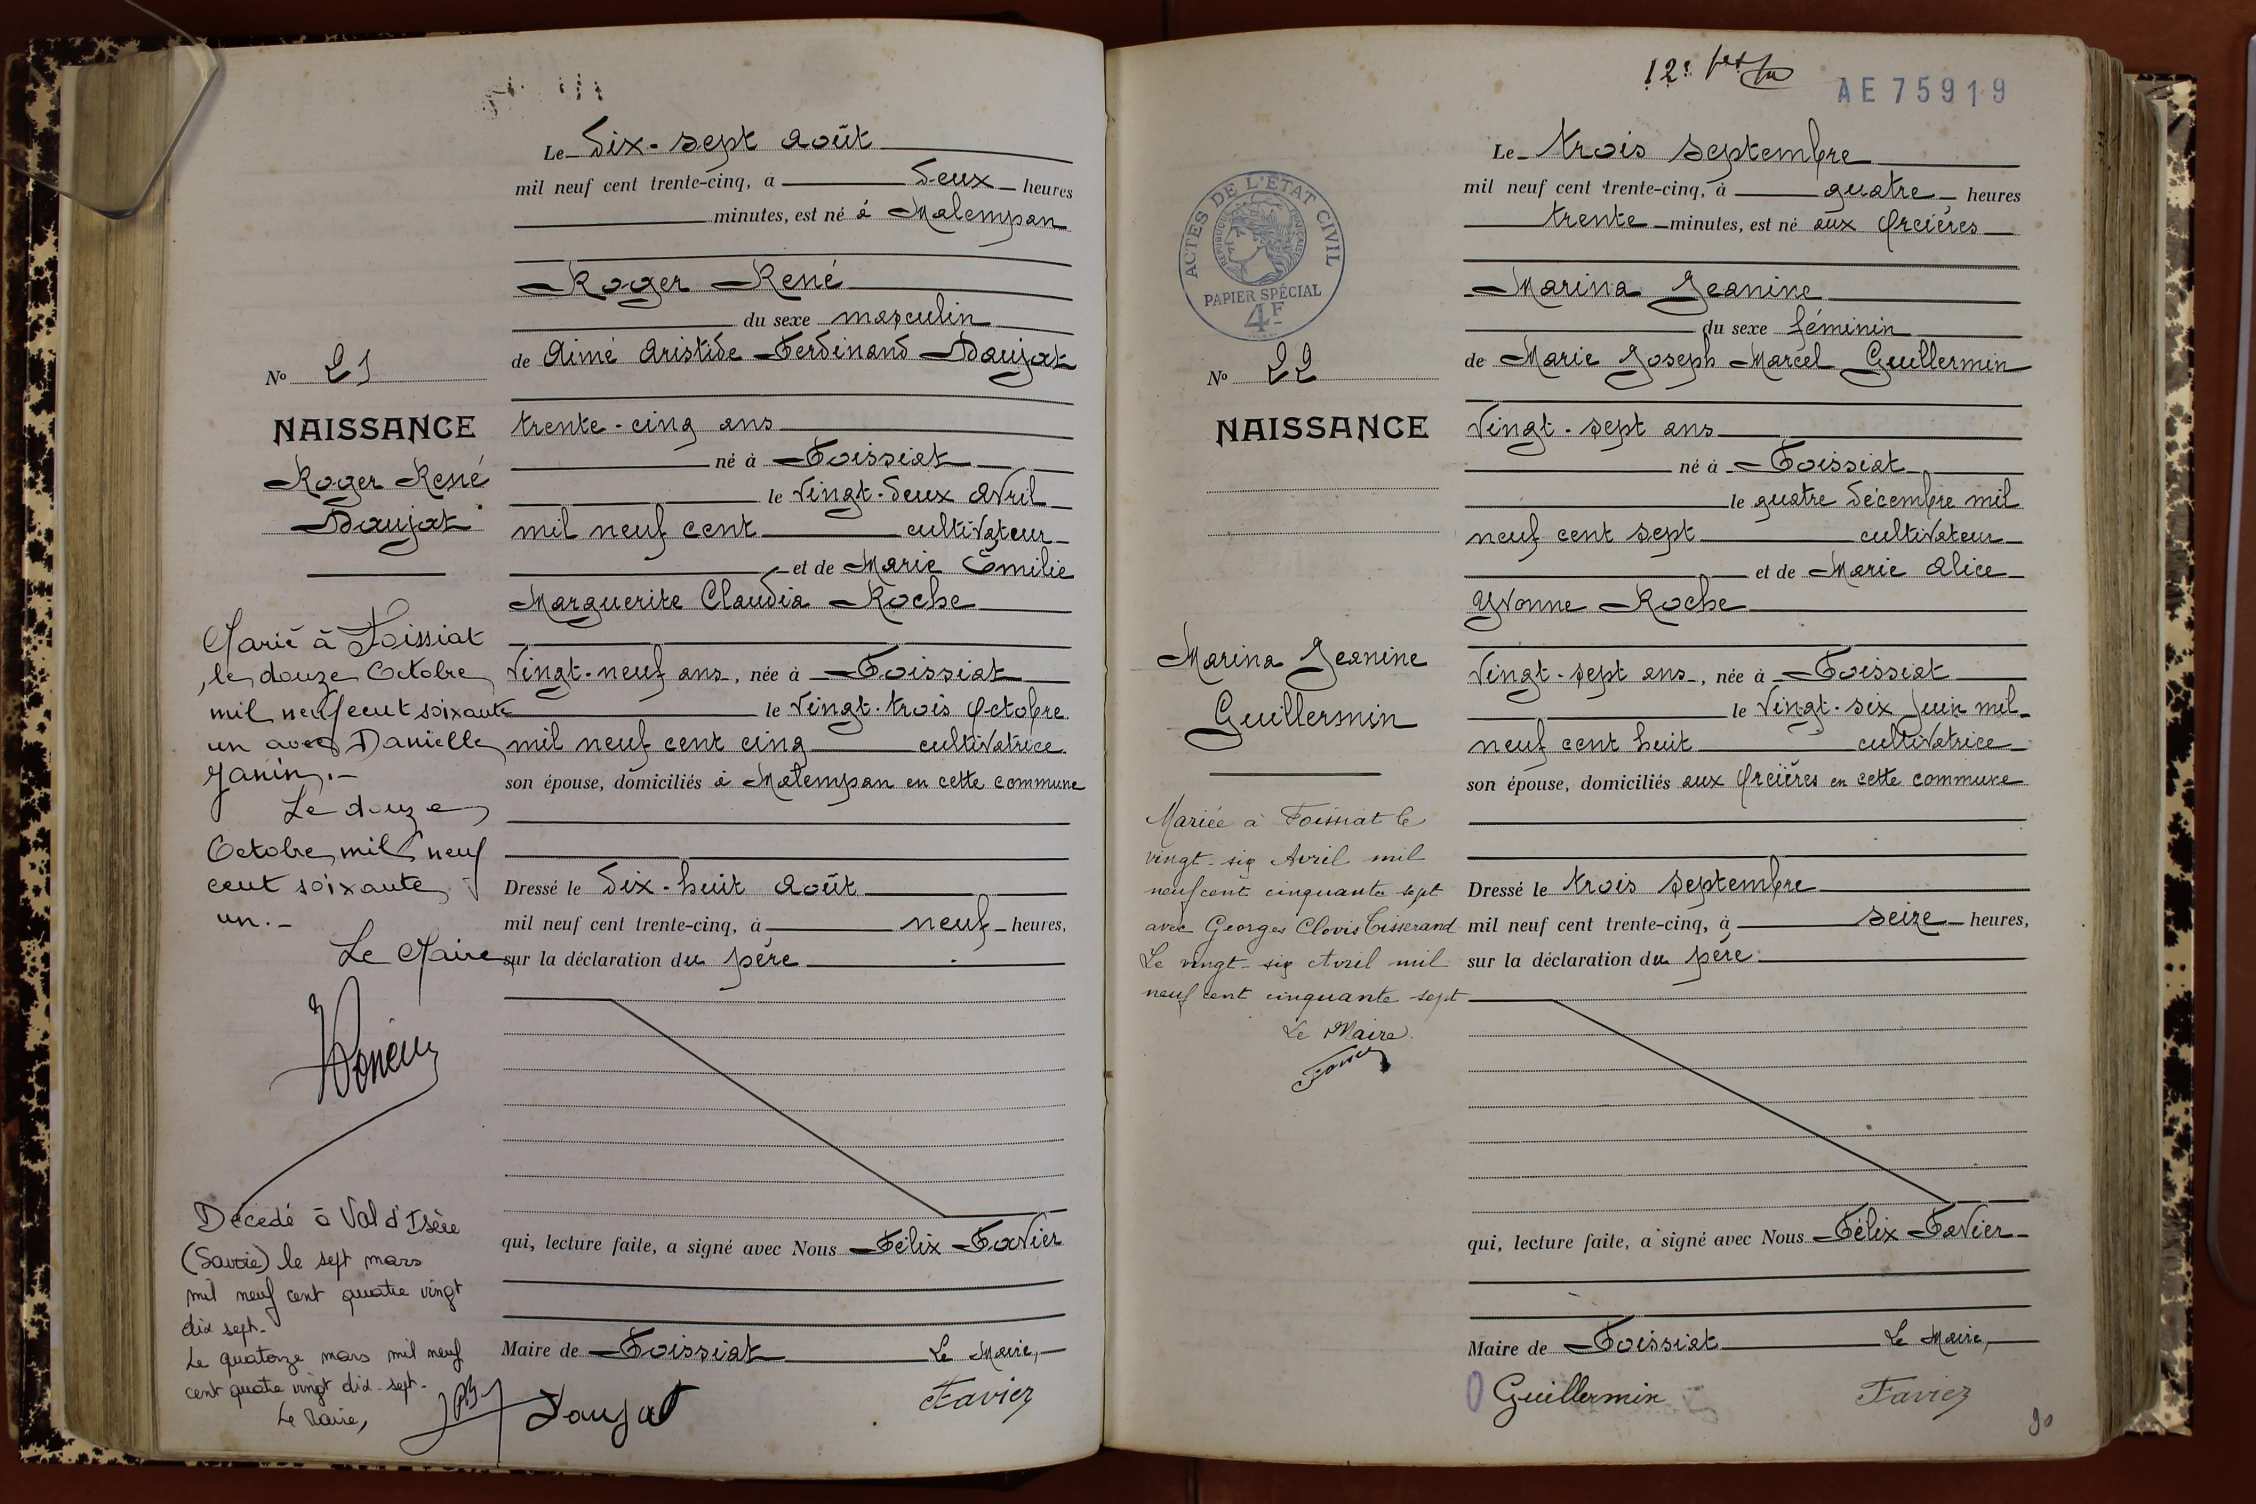 Le dix-sept août
mil neuf cent trente-cinq, à deux heures
minutes, est né à Malempan
Roger René
du sexe masculin
de Aimé Aristide Ferdinand Daujat
trente-cinq ans
né à Foissiat
le vingt-deux avril
mil neuf cent cultivateur
et de Marie Emilie
Marguerite Claudia Roche
vingt-neuf ans, née à Foissiat
le vingt-trois octobre
mil neuf cent cinq cultivatrice
son épouse, domiciliés à Malempan en cette commune
Dressé le dix-huit août
mil neuf cent trente-cinq, à neuf heures,
sur la déclaration du père
qui, lecture faite, a signé avec Nous Félix Favier
Maire de Foissiat Le Maire,
Daujat Favier
No 21
NAISSANCE
Roger René
Daujat
Marié à Foissiat
le douze Octobre
mil neuf cent soixante
un avec Danielle
Janin.-
Le douze
Octobre mil neuf
cent soixante
un.-
Le Maire
Décédé à Val d'Isère
(Savoie) le sept mars
mil neuf cent quatre vingt
dix sept-
Le quatorze mars mil neuf
cent quatre vingt dix-sept-
Le Maire,
AE 75919
Le trois septembre
mil neuf cent trente-cinq, à quatre heures
trente minutes, est né aux Orcières
Marina Jeanine
du sexe féminin
de Marie Joseph Marcel Guillermin
vingt-sept ans
né à Foissiat
le quatre décembre mil
neuf cent sept cultivateur
et de Marie Alice
Yvonne Roche
vingt-sept ans, née à Foissiat
le vingt-six juin mil
neuf cent huit cultivatrice
son épouse, domiciliés aux Orcières en cette commune
Dressé le trois septembre
mil neuf cent trente-cinq, à seize heures,
sur la déclaration du père
qui, lecture faite, a signé avec Nous Félix Favier
Maire de Foissiat Le Maire,
Guillermin Favier
90
ACTES DE L'ÉTAT CIVIL
RÉPUBLIQUE FRANÇAISE
PAPIER SPÉCIAL
4F
No 22
NAISSANCE
Marina Jeanine
Guillermin
Mariée à Foissiat le
vingt-six Avril mil
neuf cent cinquante sept
avec Georges Clovis Tisserand
Le vingt-six Avril mil
neuf cent cinquante sept
Le Maire
Favier